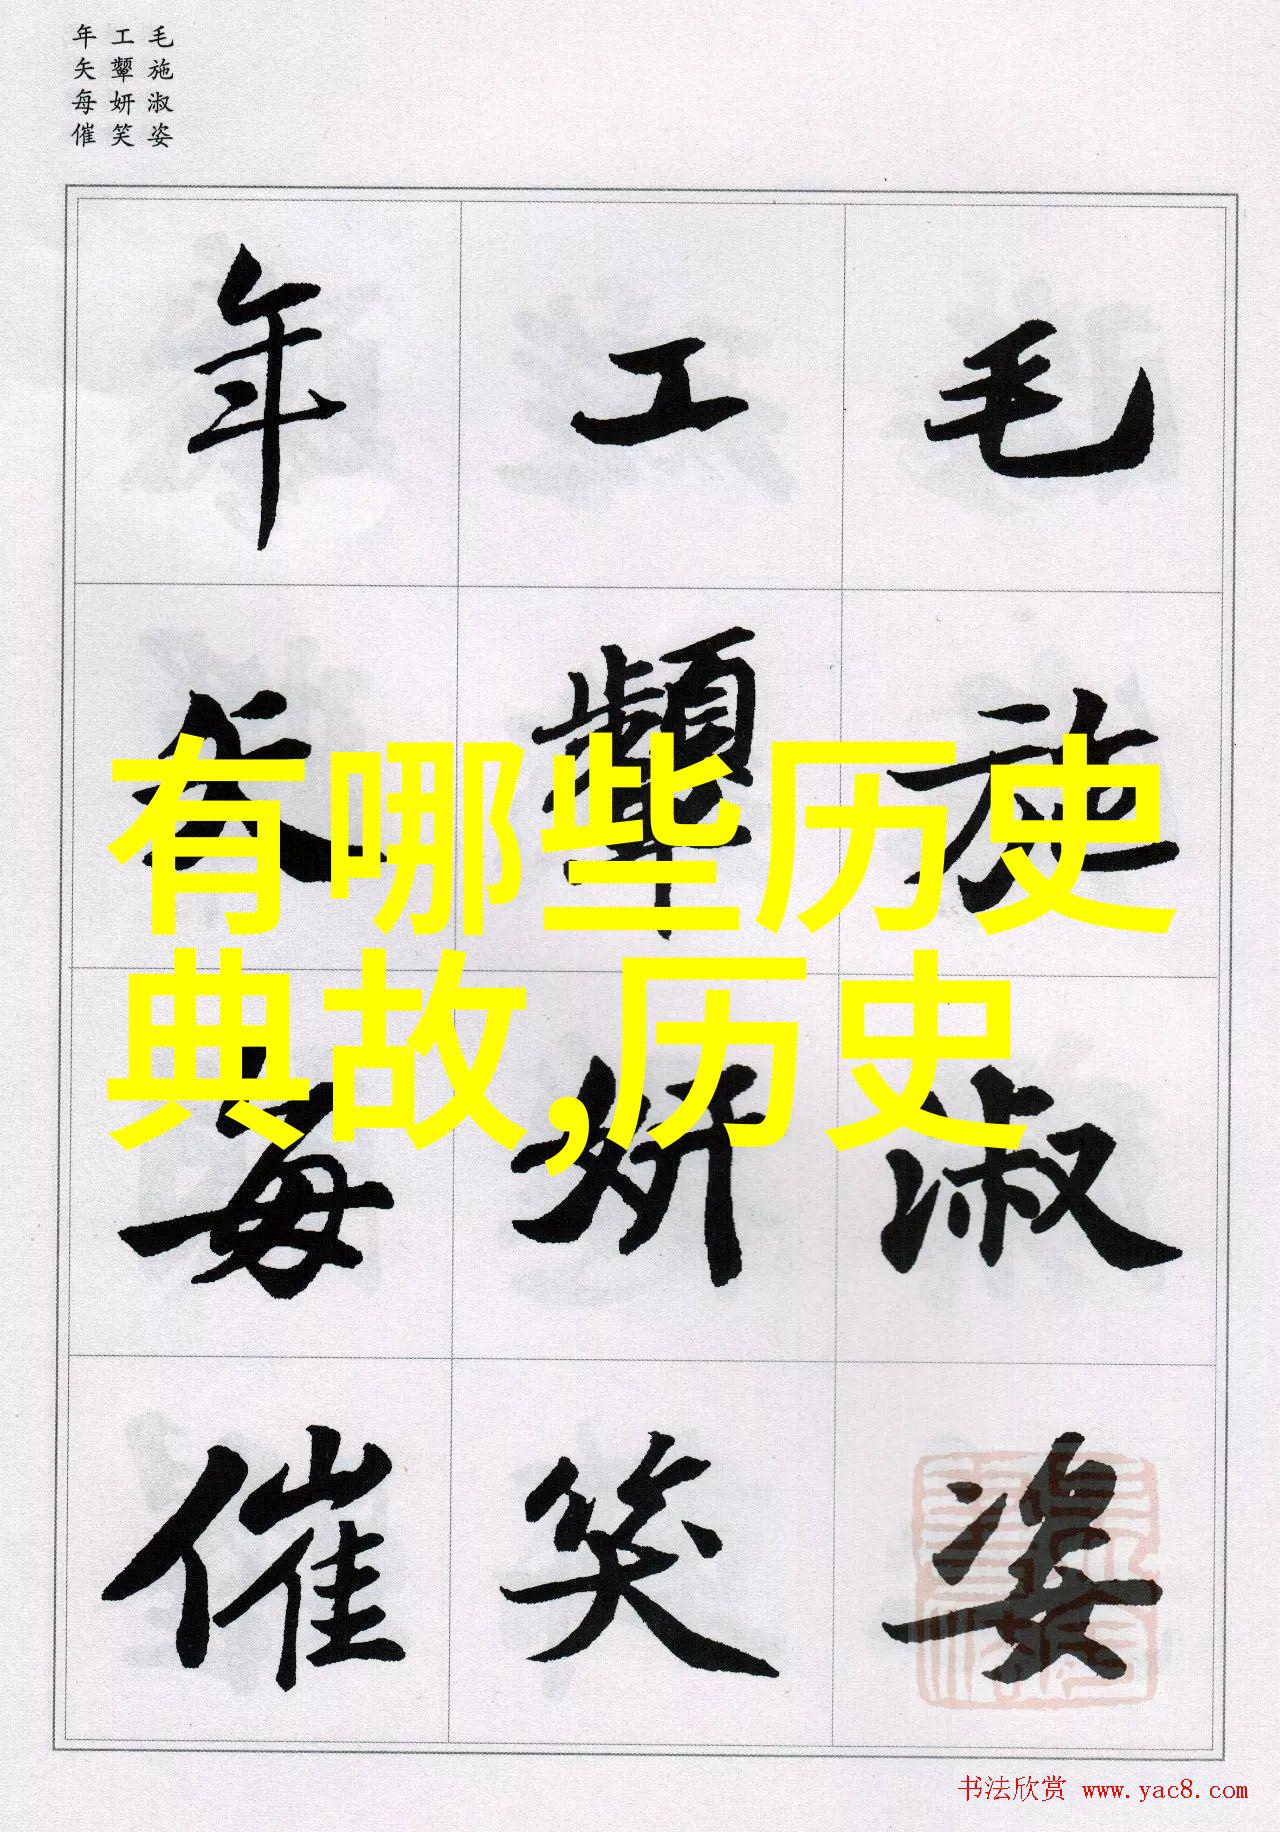 毛施淑姿
工颦妍笑
年矢每催
毛施淑姿
工颦妍笑
年矢每催
有哪些历史
典故,历史
书法欣赏 www.yac8.com